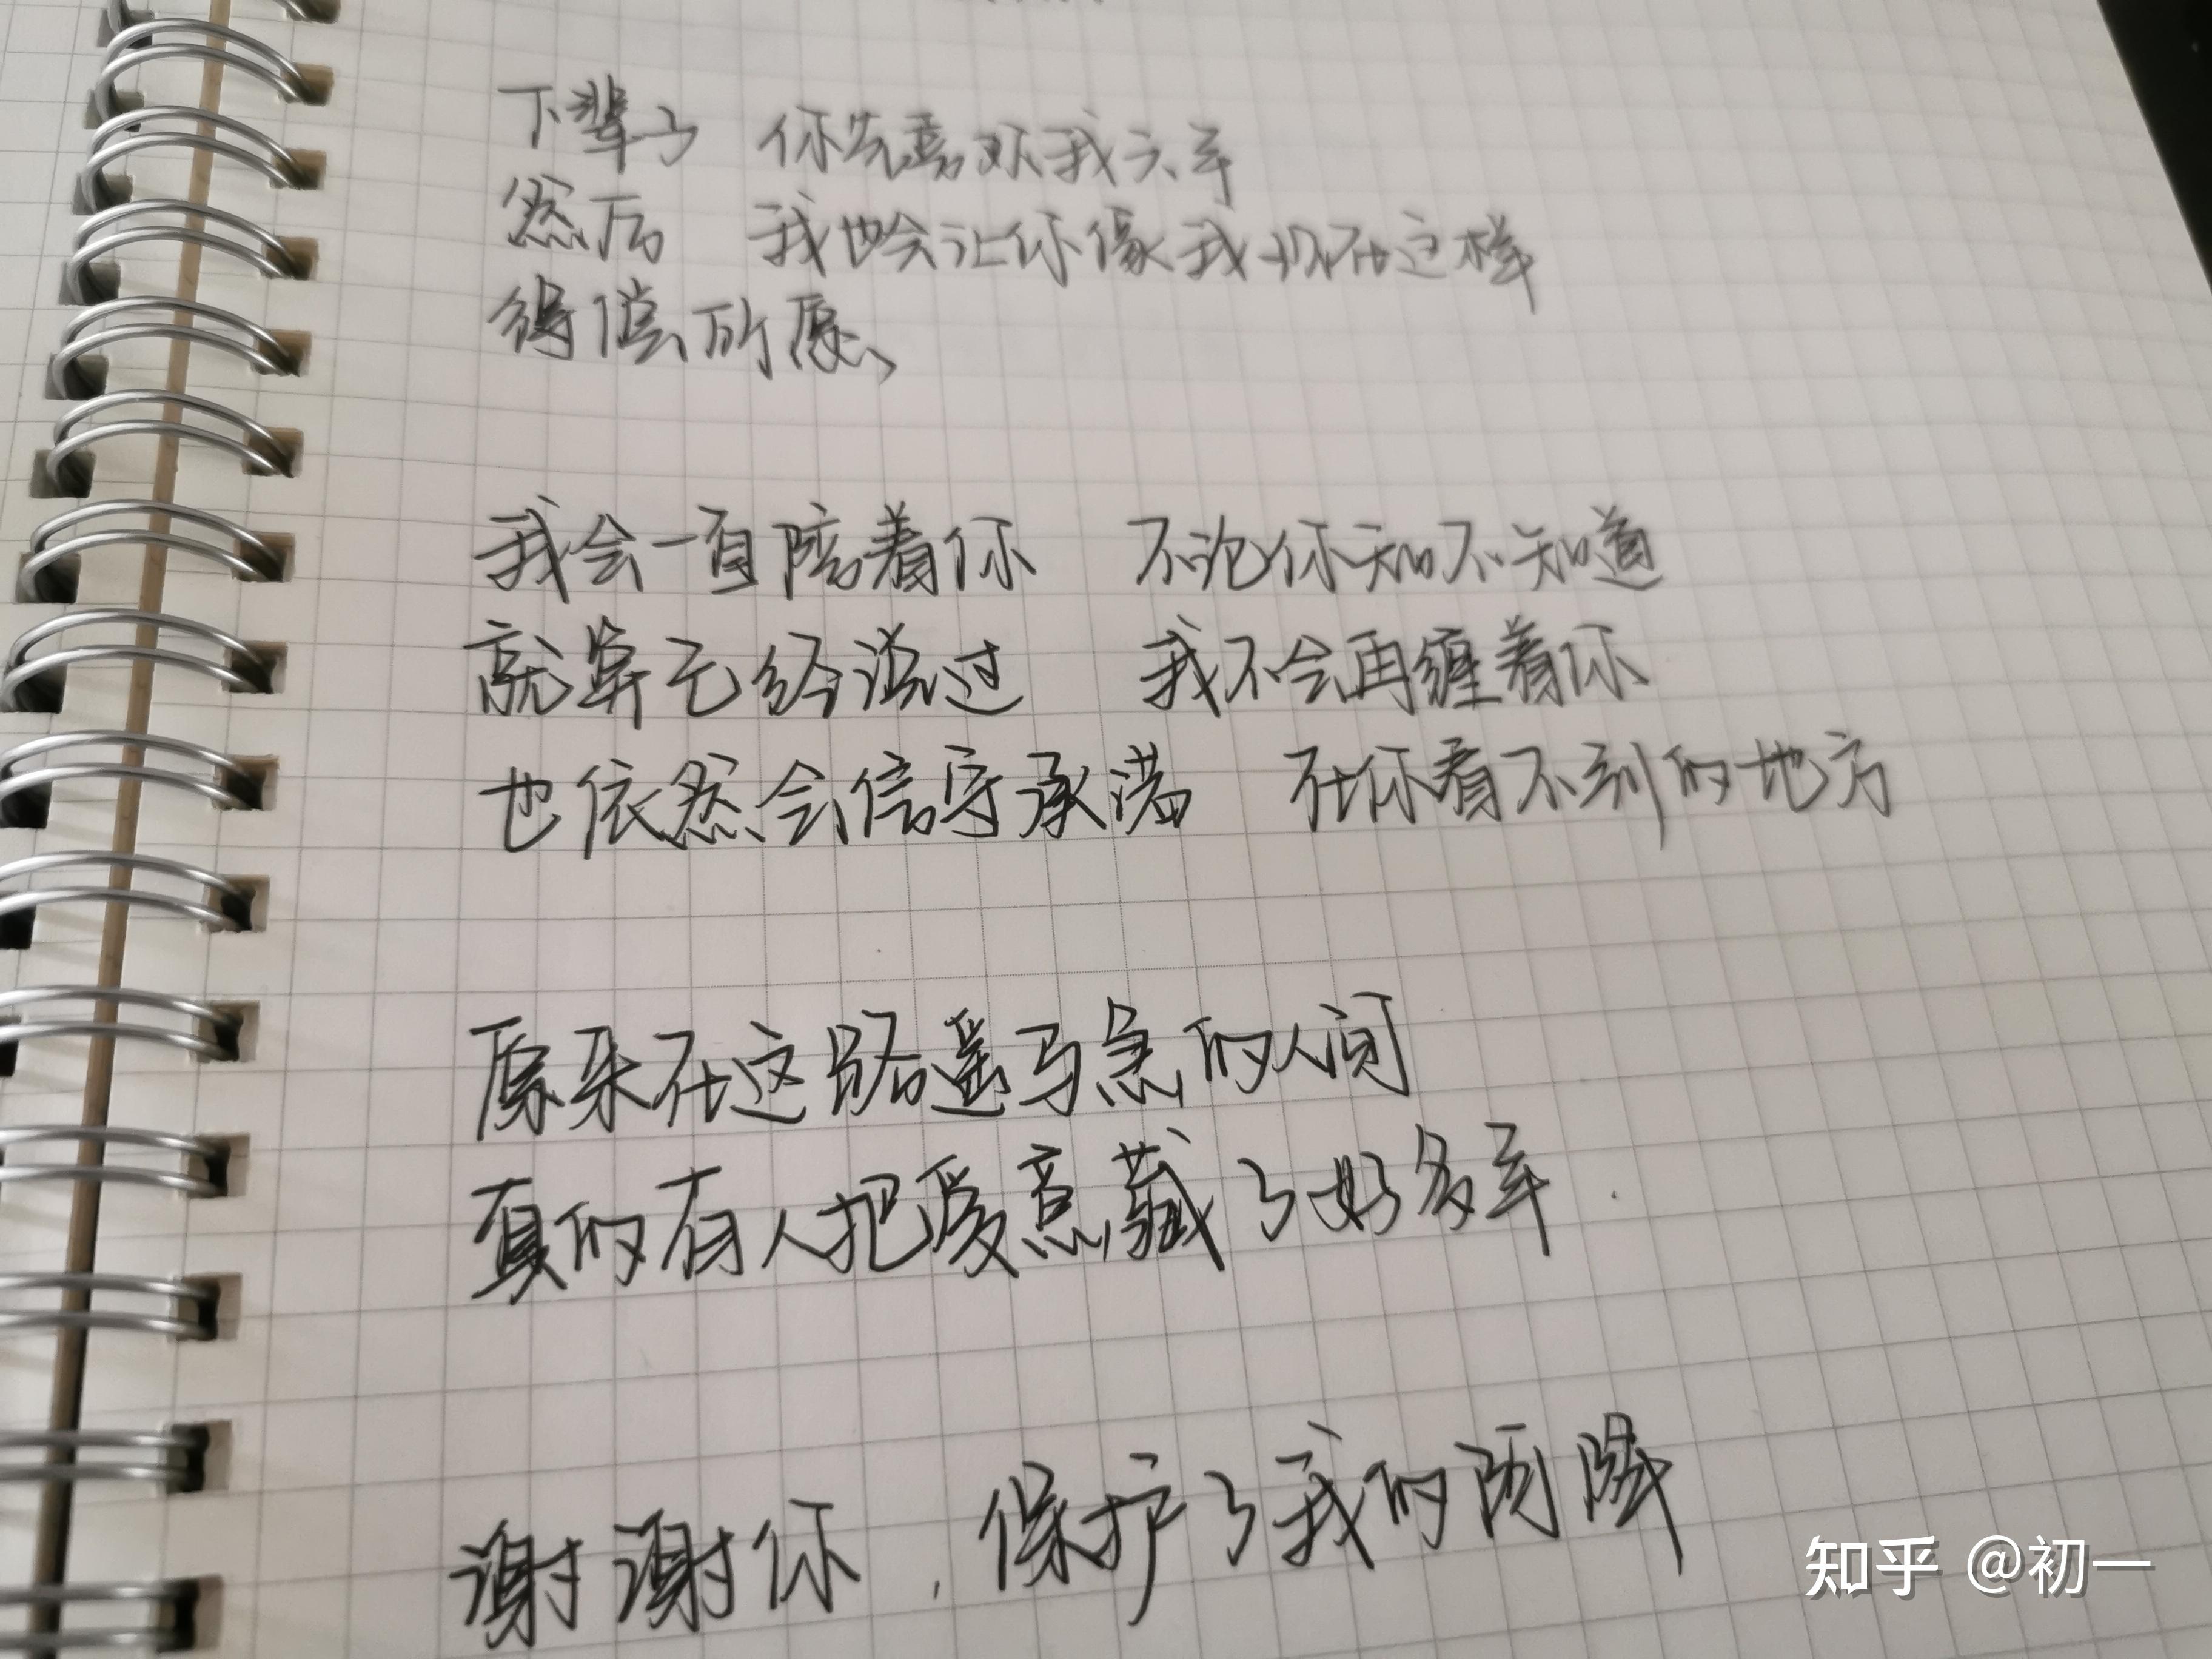 下辈子 你先喜欢我六年
然后 我也会让你像我现在这样
得偿所愿、
我会一直陪着你 不论你知不知道
就算已经说过 我不会再缠着你
也依然会信守承诺 在你看不到的地方
原来在这路遥马急的人间
真的有人把爱意藏了好多年.
谢谢你,保护了我的
知乎 @初一